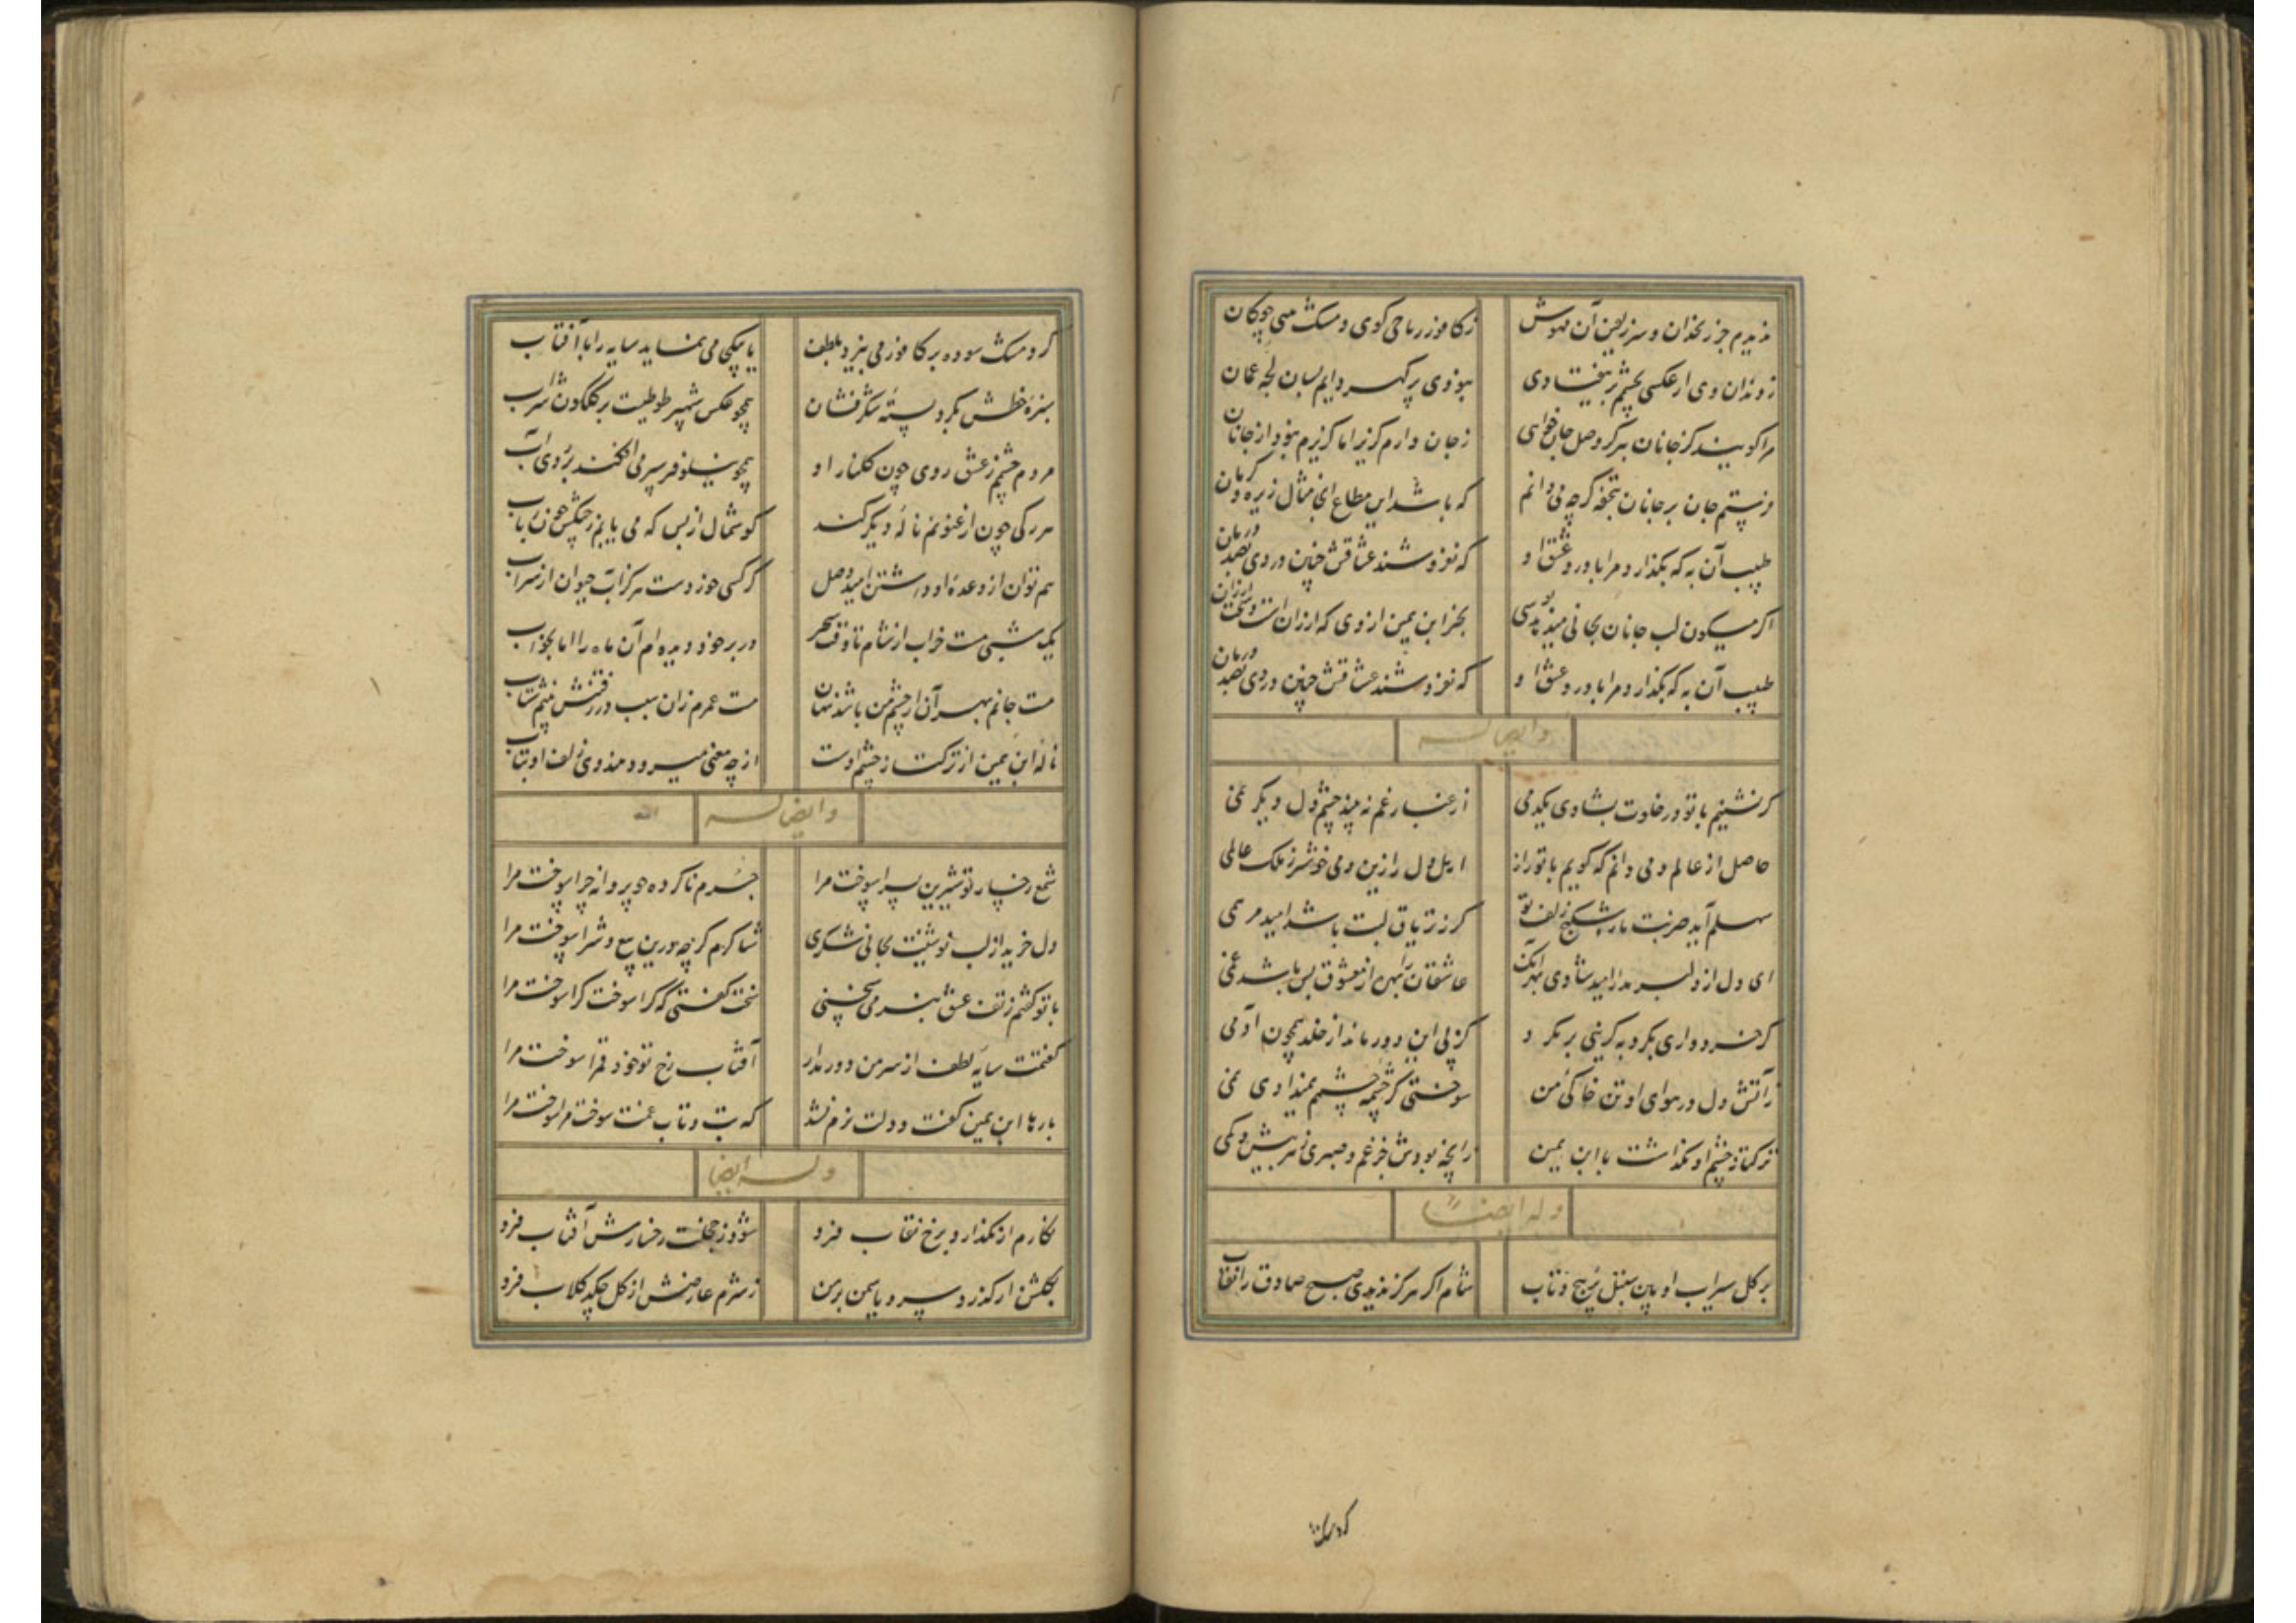 ندیدم جز زنخدان و سر زلفین آن مهوش زکافور ریاحی گوی و مشک چوکان
ز دندان وی ار عکسی بچشم بر بیفتادی ببودی پر گهر دایم بسان لجه عمان
مرا گویند کز جانان ببر گر وصل جان خواهی ز جان دارم گزیر اما گزیرم نبود از جانان
فرستم جان بر جانان بتحفه گرچه می دانم که باشد این مثال زیره و کرمان
طبیب آن به که بگذارد مرا با درد عشق او که نفروشند عشاقش چنین دردی بصد درمان
اگر میگون لب جانان بجانی بخر ابن یمین از وی که ارزان است و سخت ارزان
طبیب آن به که بگذارد مرا با درد عشق او که نفروشند عشاقش چنین دردی بصد درمان
وایضا له
گر نشینم با تو در خلوت بشادی یکدمی از غبار غم نبیند چشم دل دیگر غمی
حاصل از عالم دمی دانم که گویم با تو راز اهل دل را زین دمی خوشتر ز ملک عالمی
سهلم آید ضربت مار شکنج زلف تو گر ز تریاق لبت باشد امید مرهمی
ای دل از دلبر مدار امید شادی بهر آنک عاشقان را بهر از معشوق بس باشد غمی
گر خرد داری بگرد به گزینی بر مگرد کز پی این دور ماند از خلد همچون آدمی
ز آتش دل در هوای او تن خاکی من سوختی گر چشمه چشمم ندادی نمی
ترکتاز چشم او نگذاشت با ابن یمین زانچه بودش جز غم و صبری ز هر بیش و کمی
وله ایضا
بر گل سیراب او بین سنبل پر پیچ و تاب شام اگر هرگز ندیدی صبح صادق را نقاب
گرد مشک
گرد مشک سوده بر کافور می بیزد بلطف یا بکجی می نماید سایه را با آفتاب
سبزه خطش بگرد پسته شکرفشان همچو عکس شهپر طوطیست بر گلگون شراب
مردم چشمم ز عشق روی چون گلنار او همچو نیلوفر سپر می افکند بر روی آب
هر رگی چون ارغنونم ناله دیگر کند گوشمال از بس که می یابم ز چنگش چون رباب
هم توان از وعده او داشتن امید وصل گر کسی خوردست هرگز آب حیوان از سراب
یک شبی مست خراب از شام تا وقت سحر در بر خود دیده ام آن ماه را اما بخواب
هست جانم بهر آن از چشم من باشد نهان هست عمرم زان سبب در رفتنش بینم شتاب
ناله ابن یمین از ترکتاز چشم اوست از چه معنی میرود هندوی زلف او بتاب
وایضا له
شمع رخسار تو شیرین پسرا سوخت مرا جرم ناکرده چو پروانه چرا سوخت مرا
دل خرید از لب نوشینت بجانی شکری شاکرم گرچه درین بیع و شرا سوخت مرا
با تو گفتم ز تف عشق سخنی سخت گفتی که کرا سوخت کرا سوخت مرا
گفتمت سایه لطف از سر من دور مدار آفتاب رخ تو خود قمرا سوخت مرا
بارها ابن یمین گفت و دلت نرم نشد که تب و تاب غمت سوخت مرا سوخت مرا
وله ایضا
نگارم ار بگذارد برخ نقاب فرو شود ز خجلت رخسارش آفتاب فرو
بگلشن ار گذرد سرو یاسمن بر من ز شرم عارضش از گل چکد گلاب فرو